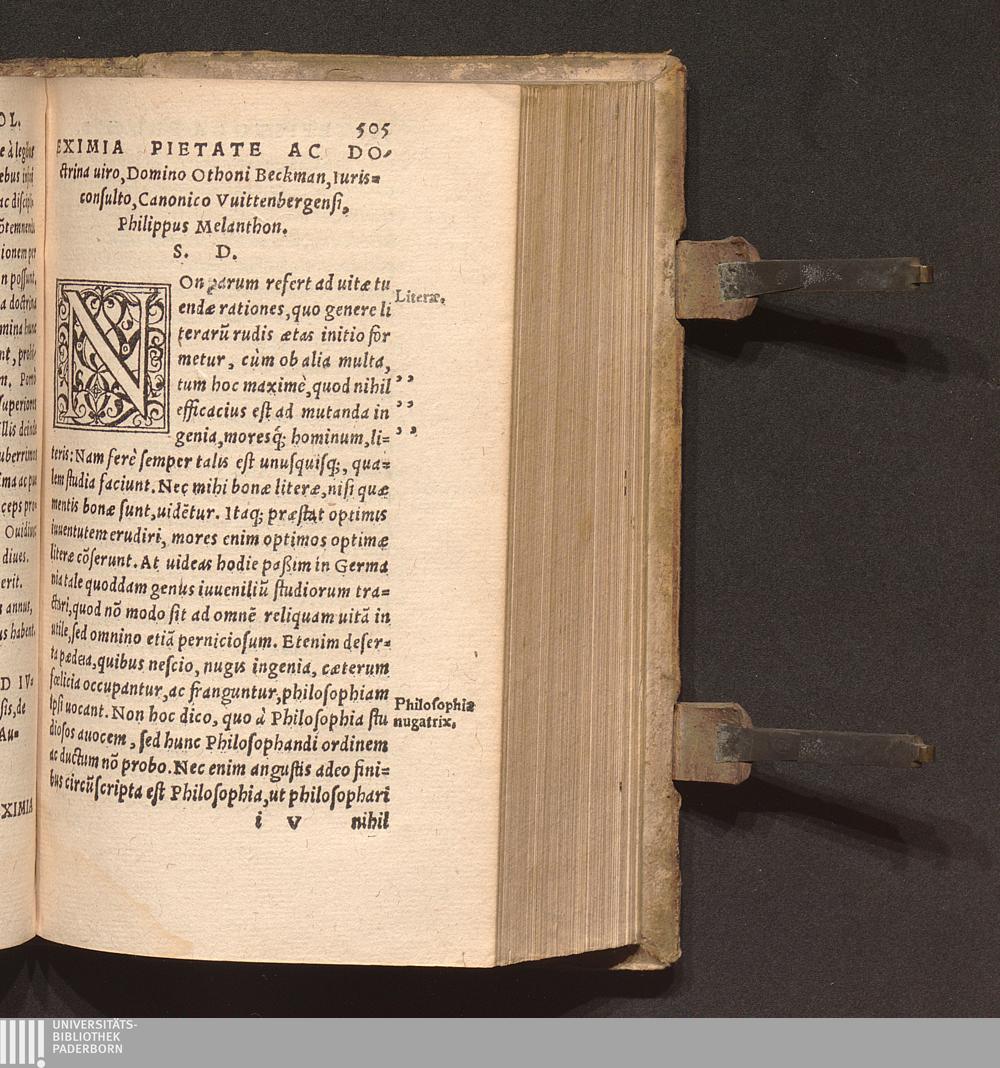 OL.
e à legibus
ac discipli
ionem per
n possunt,
a doctrina
mina hunc
superiores
illis deinde
uberrima
ima ac pu
ceps pro-
Ouidius
diues.
erit.
s annus,
us habent.
D IV-
sis, de
Au=
XIMIA
505
EXIMIA PIETATE AC DO-
ctrina uiro, Domino Othoni Beckman, Iuris=
consulto, Canonico Vuittenbergensi,
Philippus Melanthon.
S. D.
NOn parum refert ad uitæ tu
endæ rationes, quo genere li
terarū rudis ætas initio for
metur, cùm ob alia multa,
tum hoc maximè, quod nihil
efficacius est ad mutanda in
genia, moresq; hominum, li=
teris: Nam ferè semper talis est unusquisq;, qua=
lem studia faciunt. Nec mihi bonæ literæ, nisi quæ
mentis bonæ sunt, uidētur. Itaq; præstat optimis
iuuentutem erudiri, mores enim optimos optimæ
literæ cōserunt. At uideas hodie paßim in Germa
nia tale quoddam genus iuueniliū studiorum tra=
ctari, quod nō modo sit ad omnē reliquam uitā in
utile, sed omnino etiā perniciosum. Etenim deser=
ta pædeia, quibus nescio, nugis ingenia, cæterum
fœlicia occupantur, ac franguntur, philosophiam
ipsi uocant. Non hoc dico, quo à Philosophia stu
diosos auocem, sed hunc Philosophandi ordinem
ac ductum nō probo. Nec enim angustis adeo fini=
bus circūscripta est Philosophia, ut philosophari
i v nihil
Literæ.
,,
,,
,,
Philosophia
nugatrix.
UNIVERSITÄTS-
BIBLIOTHEK
PADERBORN